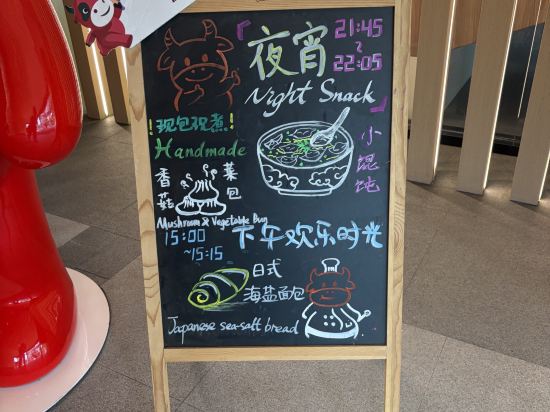 夜宵
21:45
~
22:05
Night Snack
现包现煮!
Handmade
小馄饨
香菇
菜包
Mushroom & Vegetable Bun
15:00
~15:15
下午欢乐时光
日式
海盐面包
Japanese sea-salt bread